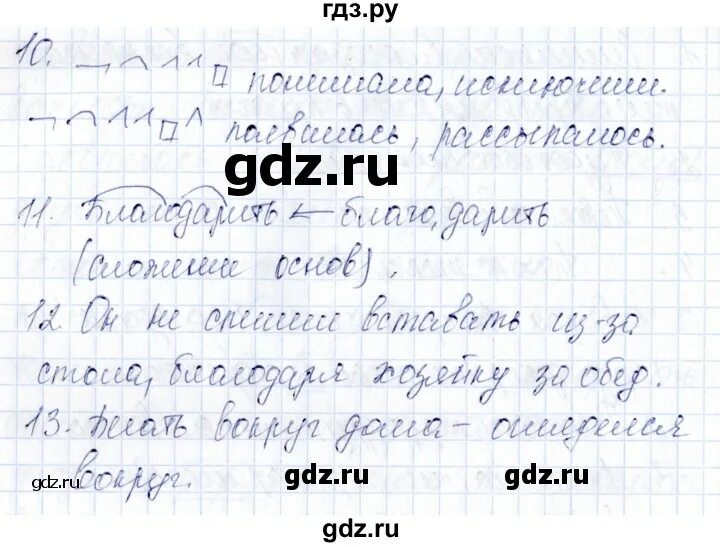 гдз.ру
10. понимала, исключили.
появилась, рассыпалось.
gdz.ru
11. Благодарить ← благо, дарить
(сложение основ).
12. Он не спешил вставать из-за
стола, благодаря хозяйку за обед.
13. Бегать вокруг дома – огляделся
вокруг.
gdz.ru
gdz.ru
gdz.ru
gdz.ru